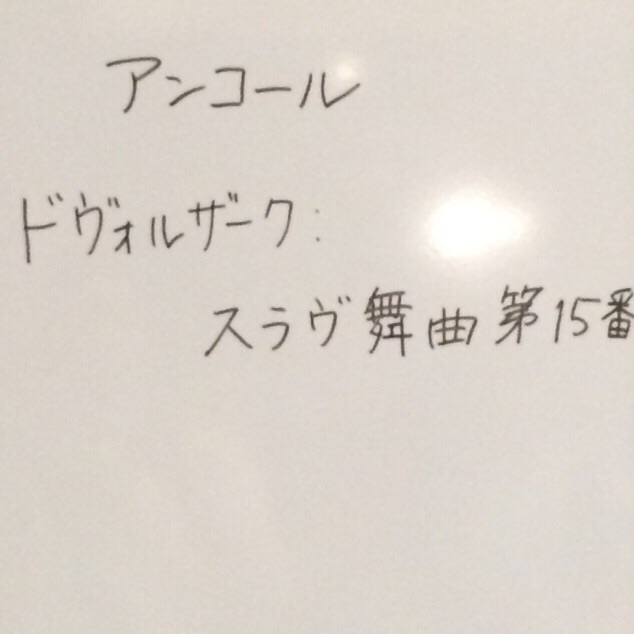 アンコール
ドヴォルザーク:
スラヴ舞曲第15番